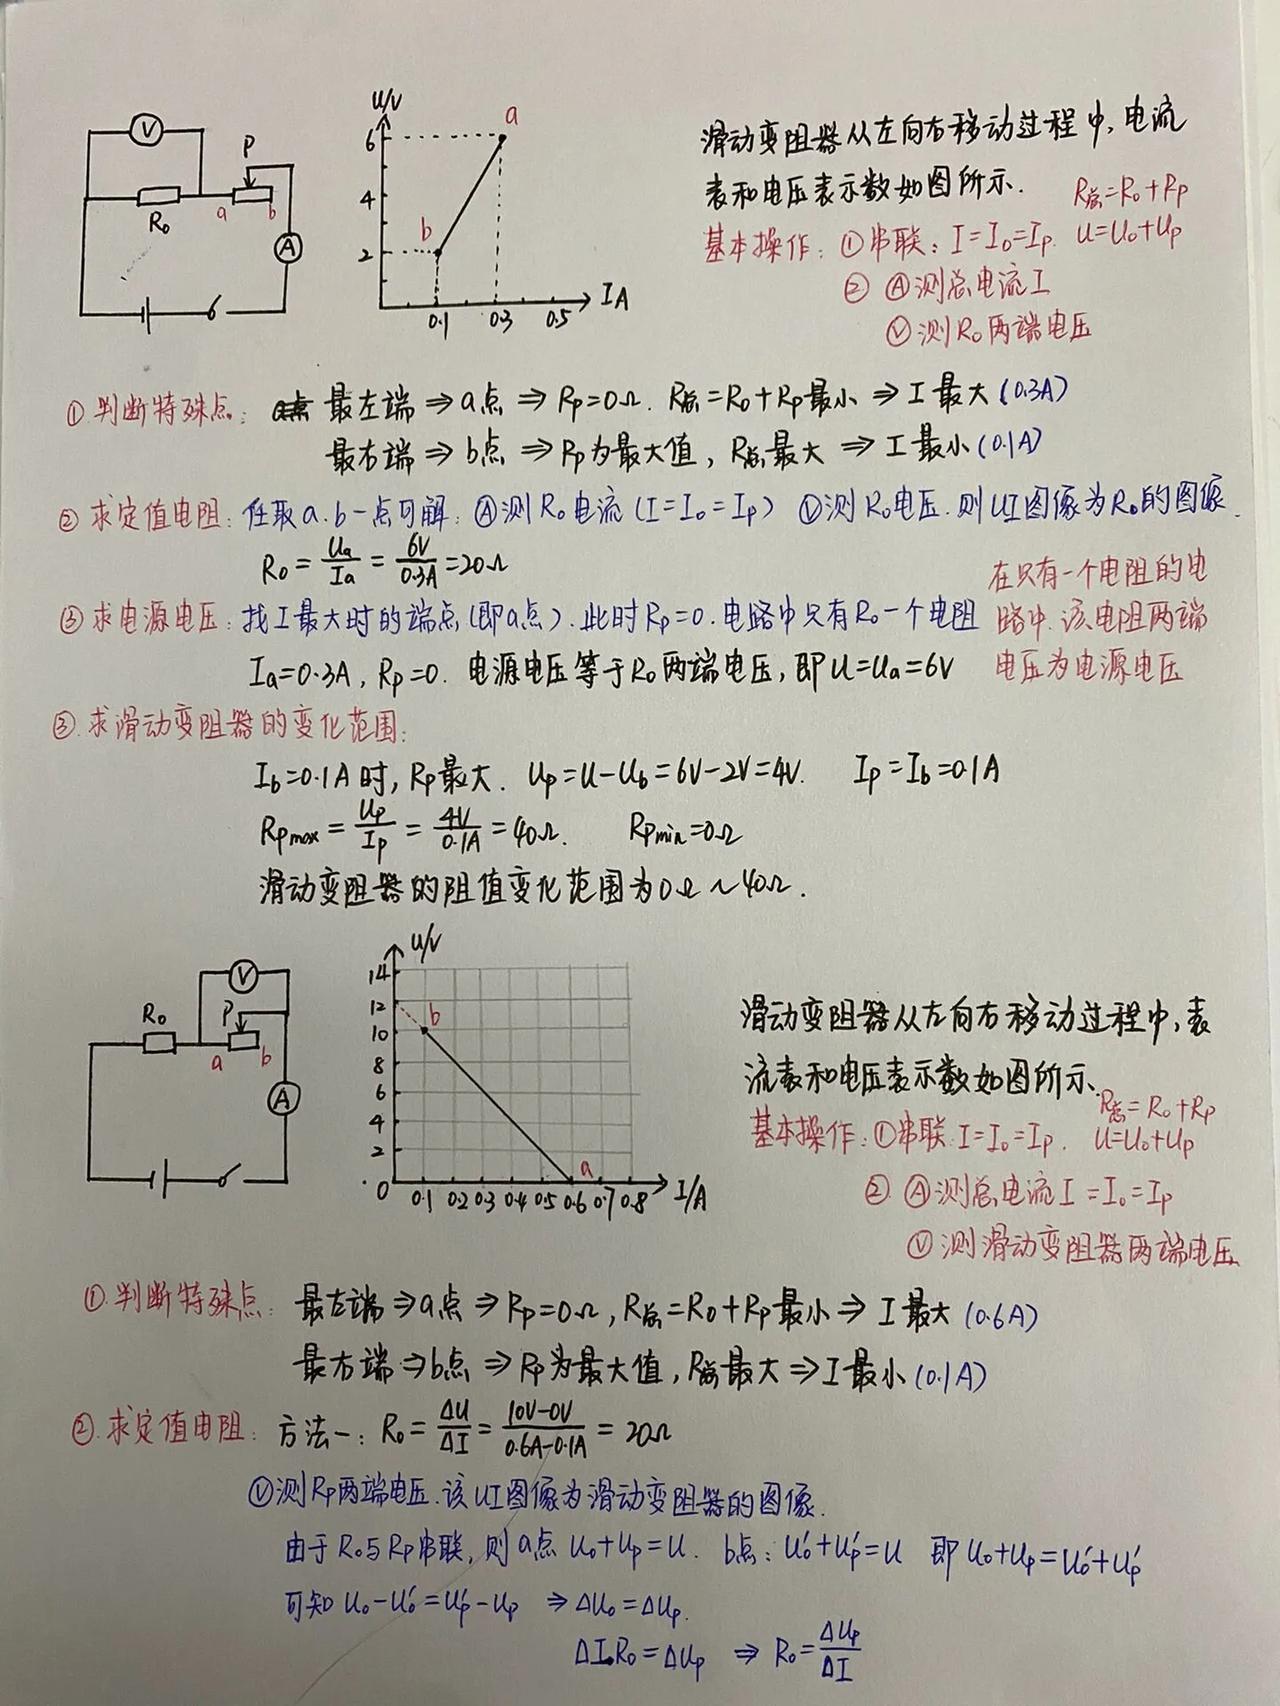 V
P
R₀
a
b
A
U/V
6
4
2
a
b
0.1
0.3
0.5
I A
滑动变阻器从左向右移动过程中，电流
表和电压表示数如图所示．
R总=R₀+Rp
基本操作：①串联：I=I₀=Ip． U=U₀+Up
② Ⓐ测总电流I
Ⓥ测R₀两端电压
①判断特殊点： 最左端⇒a点⇒Rp=0Ω．R总=R₀+Rp最小⇒I最大(0.3A)
最右端⇒b点⇒Rp为最大值，R总最大⇒I最小(0.1A)
②求定值电阻：任取a.b一点可解：Ⓐ测R₀电流(I=I₀=Ip) Ⓥ测R₀电压．则UI图像为R₀的图像．
R₀=Ua/Ia=6V/0.3A=20Ω
③求电源电压：找I最大时的端点(即a点)．此时Rp=0．电路中只有R₀一个电阻
Ia=0.3A，Rp=0．电源电压等于R₀两端电压，即U=Ua=6V
在只有一个电阻的电
路中．该电阻两端
电压为电源电压
③．求滑动变阻器的变化范围：
Ib=0.1A时，Rp最大．Up=U-Ub=6V-2V=4V． Ip=Ib=0.1A
Rpmax=Up/Ip=4V/0.1A=40Ω． Rpmin=0Ω
滑动变阻器的阻值变化范围为0Ω～40Ω．
V
R₀
P
a
b
A
U/V
14
12
10
8
6
4
2
0
b
a
0.1 0.2 0.3 0.4 0.5 0.6 0.7 0.8
I/A
滑动变阻器从左向右移动过程中，表
流表和电压表示数如图所示．
R总=R₀+Rp
基本操作：①串联：I=I₀=Ip． U=U₀+Up
② Ⓐ测总电流I=I₀=Ip
Ⓥ测滑动变阻器两端电压
①．判断特殊点：最左端⇒a点⇒Rp=0Ω，R总=R₀+Rp最小⇒I最大(0.6A)
最右端⇒b点⇒Rp为最大值，R总最大⇒I最小(0.1A)
②．求定值电阻：方法一：R₀=ΔU/ΔI=10V-0V/0.6A-0.1A=20Ω
Ⓥ测Rp两端电压．该UI图像为滑动变阻器的图像．
由于R₀与Rp串联，则a点U₀+Up=U． b点：U₀′+Up′=U 即U₀+Up=U₀′+Up′
可知U₀-U₀′=Up′-Up ⇒ΔU₀=ΔUp．
ΔI·R₀=ΔUp ⇒ R₀=ΔUp/ΔI